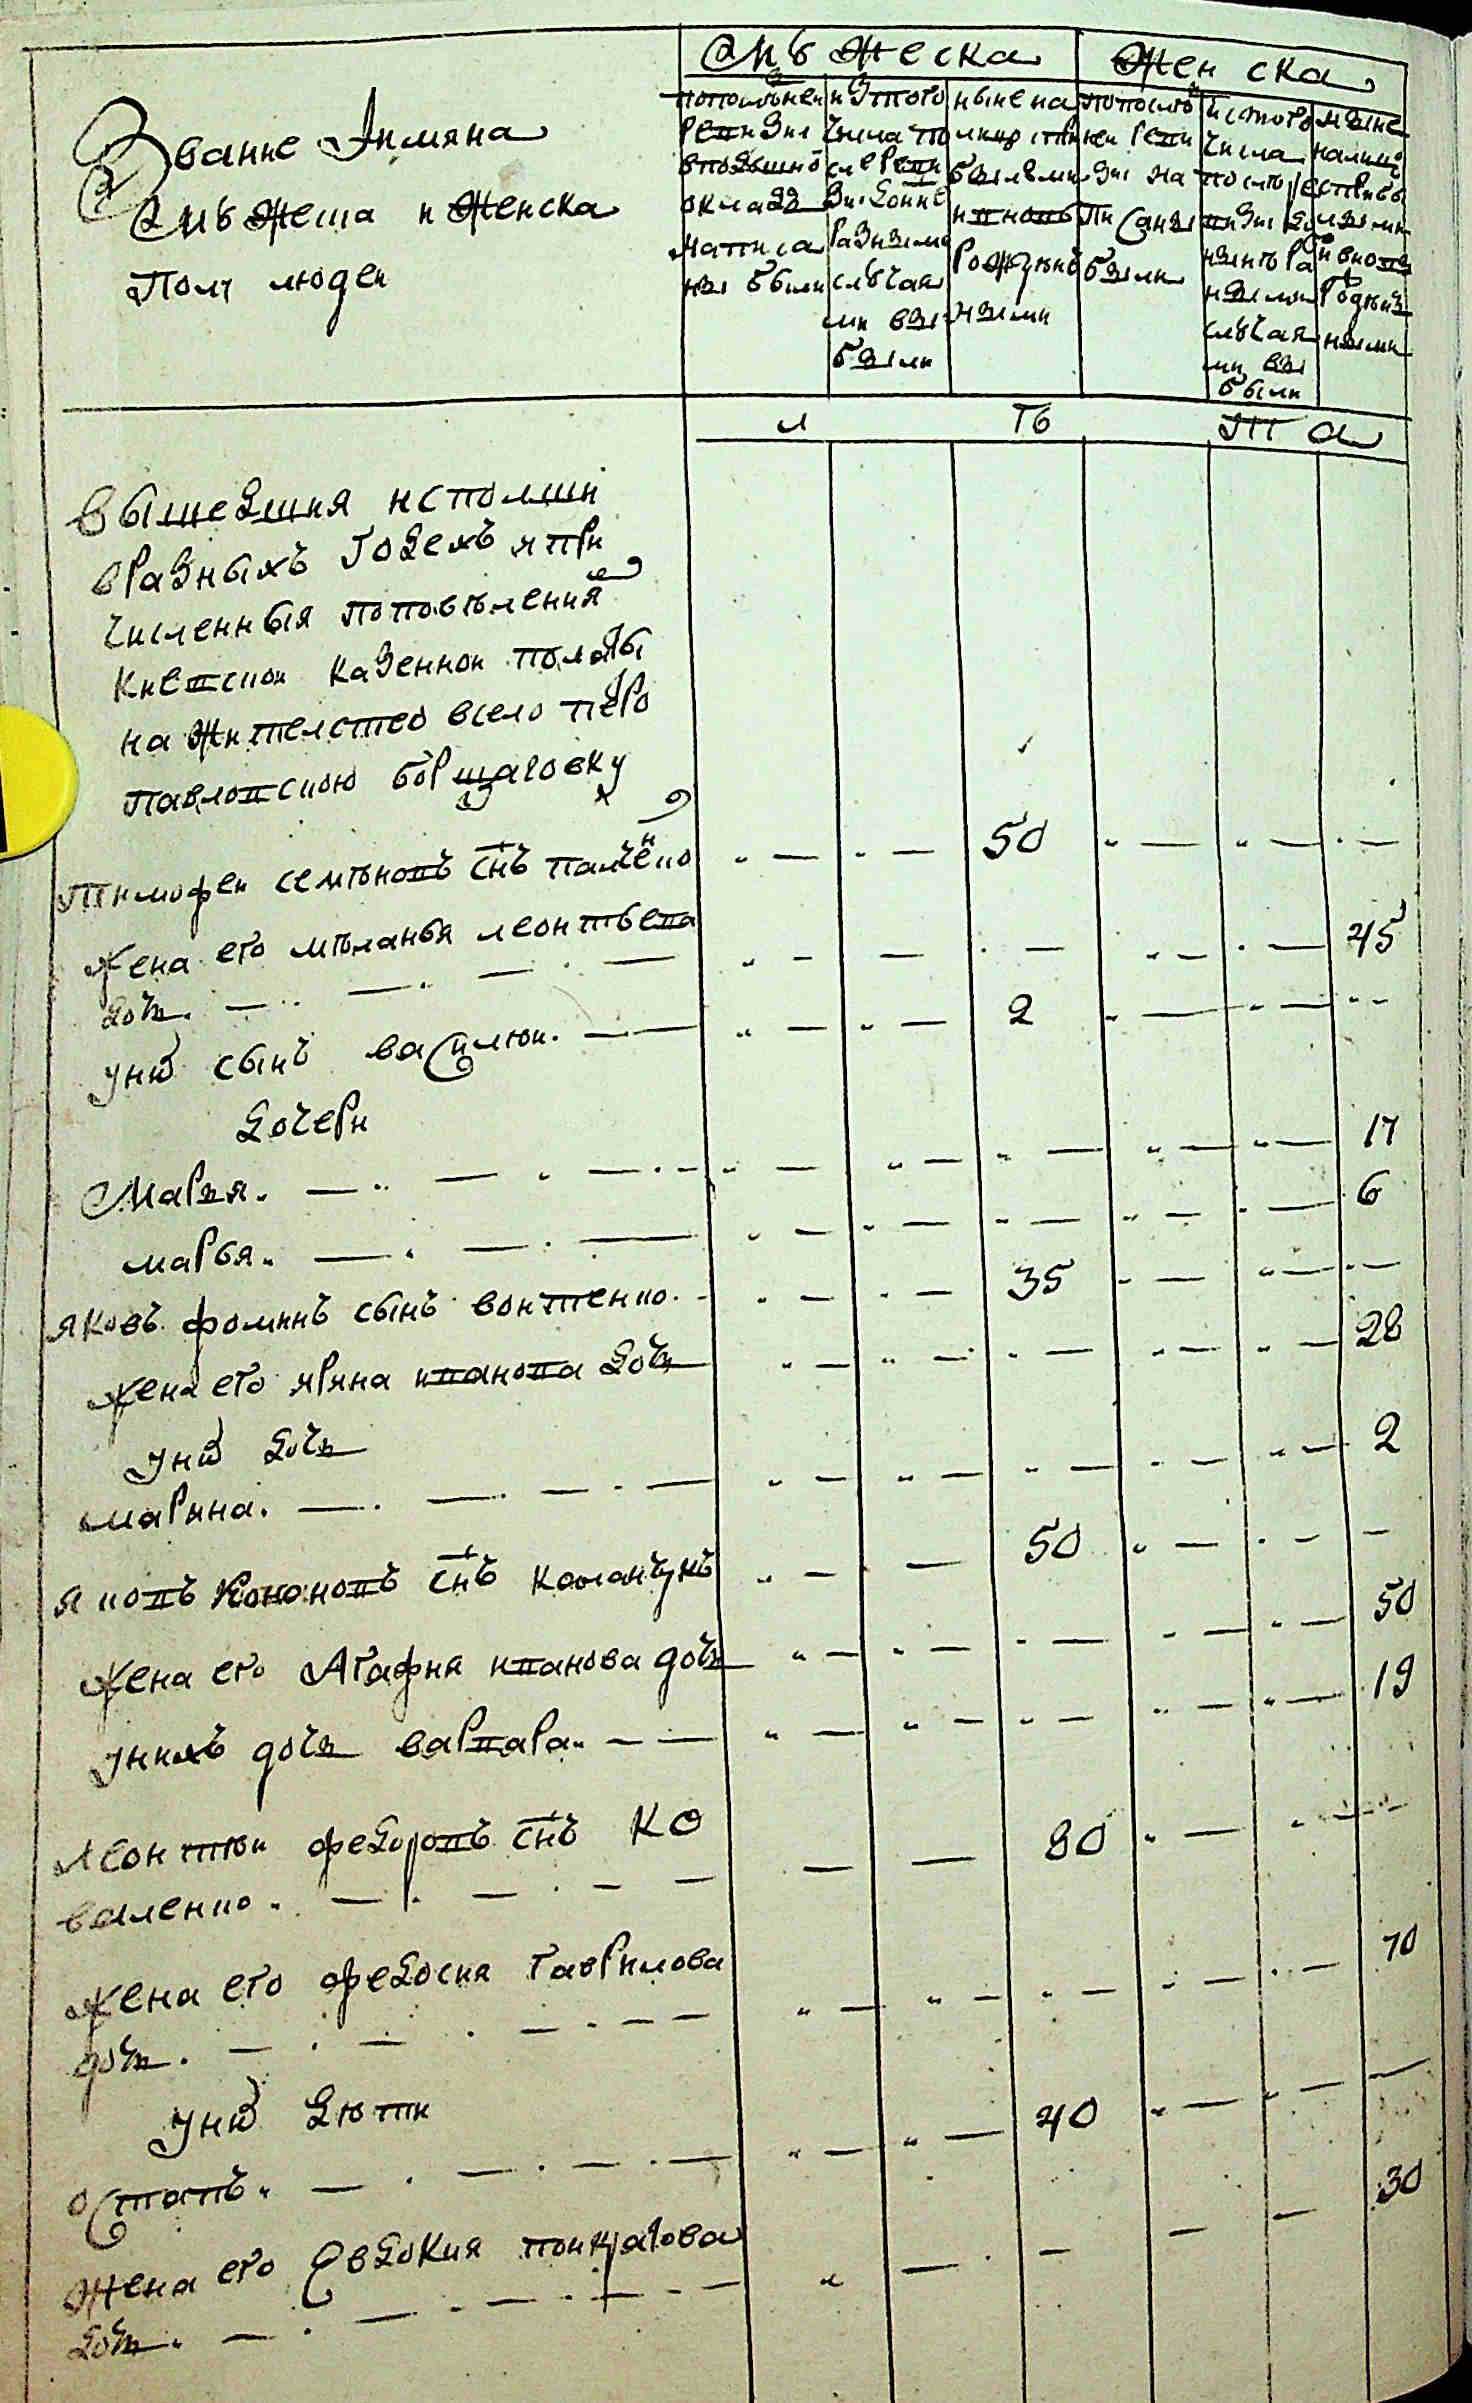 Мужеска
Женска
Звание Имяна
Мужеска и Женска
Полу людей
по последней ревизии в подушной оклад написаны были
из того числа после ревизии до ныне разными случаями выбыли
ныне на лицо с прибылыми и вновь рожденными
по последней ревизии написаны были
ис того числа после ревизии до ныне разными случаями выбыли
ныне налицо с прибылыми и вновь рожденными
лѣта
вышедшия ис полши
в разныхъ годехъ и при
численныя по повѣлению
киевской казенной полаты
на жителство в село петро
павловскою борщаговку
Тимофей семѣновъ снъ палчѣнко 50
жена его мѣланья леонтьева 45
дочь
у них сынъ василий 2
дочери
Маря 17
марья 6
яковъ фоминъ сынъ войтенко 35
жена его ирина иванова дочь 28
у них дочь
марина 2
яковъ Кононовъ снъ 50
жена его Агафия иванова дочь 50
у нихъ дочь варвара 19
леонтий федоровъ снъ ко 80
валенко
жена его федосия гаврилова 70
дочь
у них дѣти
остапъ 40
жена его Евдокия понкратова 30
дочь